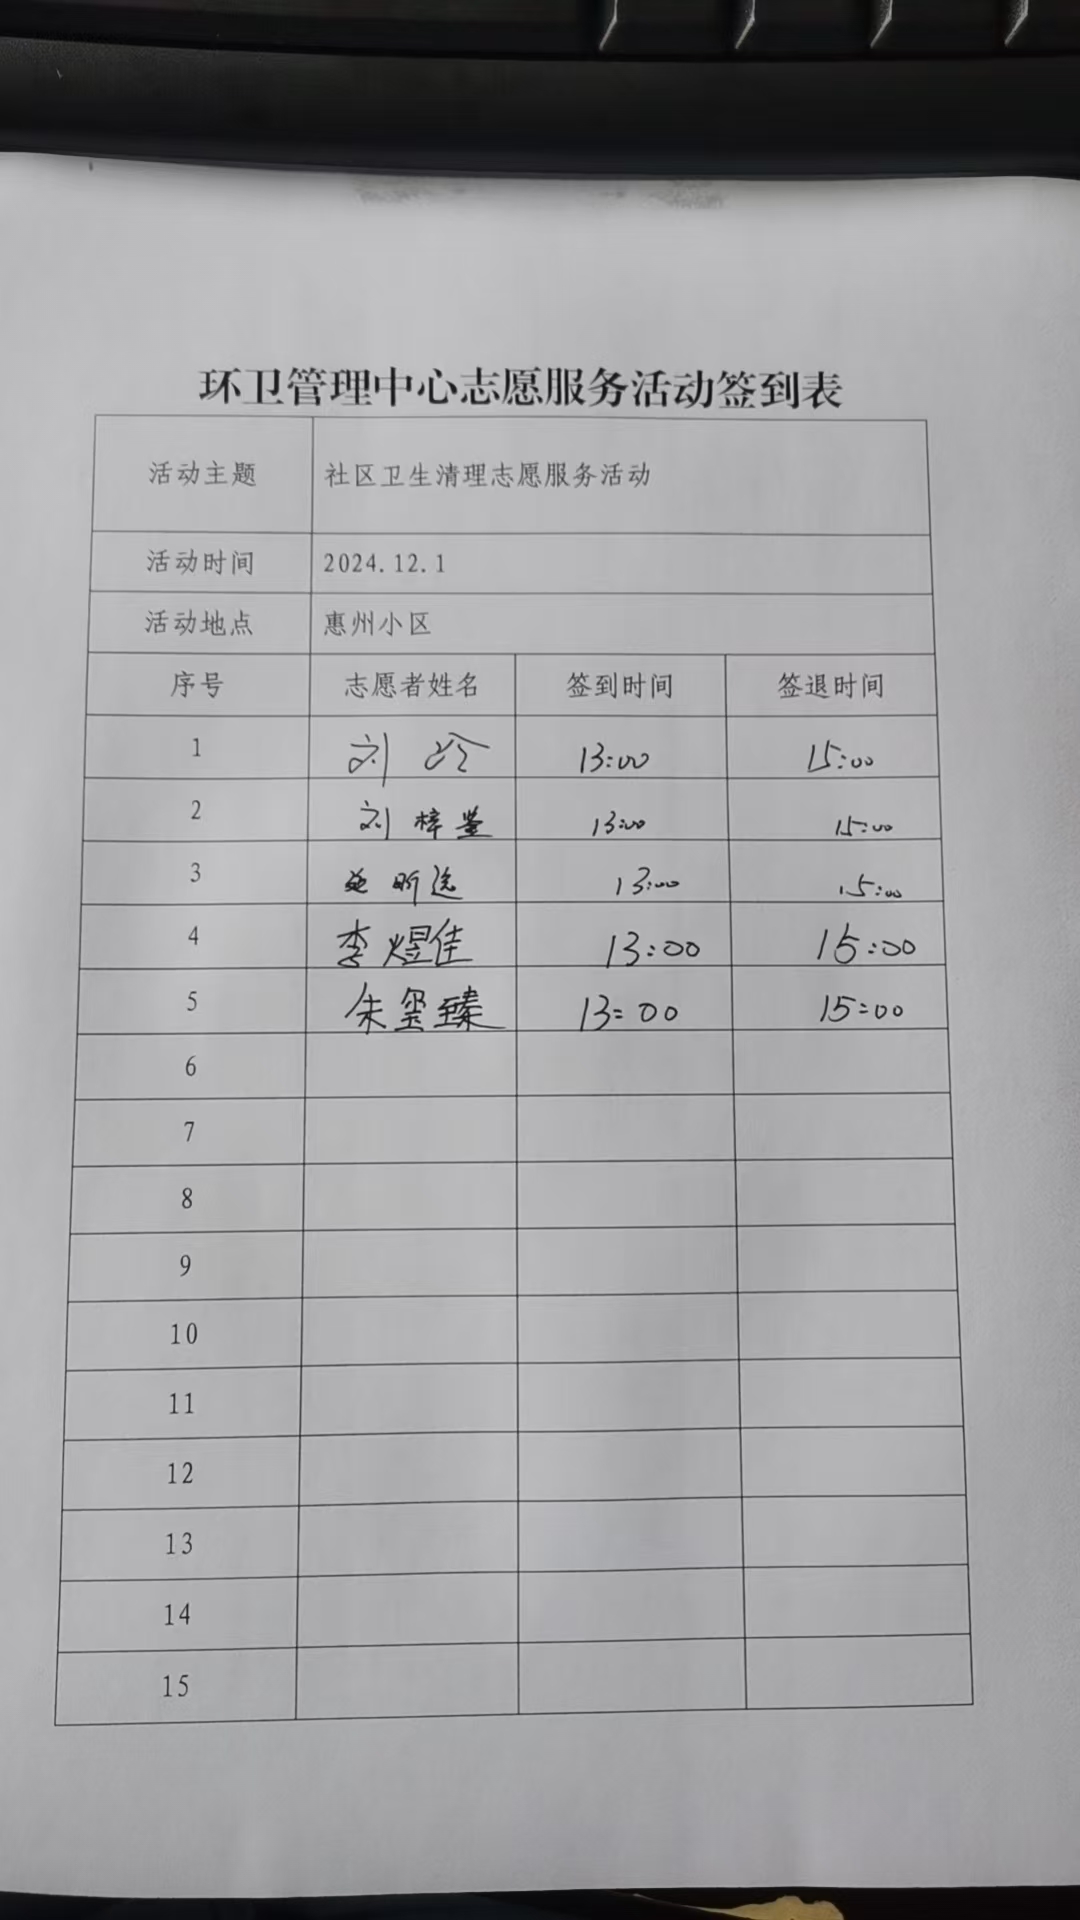 环卫管理中心志愿服务活动签到表
活动主题 社区卫生清理志愿服务活动
活动时间 2024.12.1
活动地点 惠州小区
序号 志愿者姓名 签到时间 签退时间
1 刘 13:00 15:00
2 刘梓 13:00 15:00
3 昕 13:00 15:00
4 李煜佳 13:00 15:00
5 朱玺臻 13:00 15:00
6
7
8
9
10
11
12
13
14
15